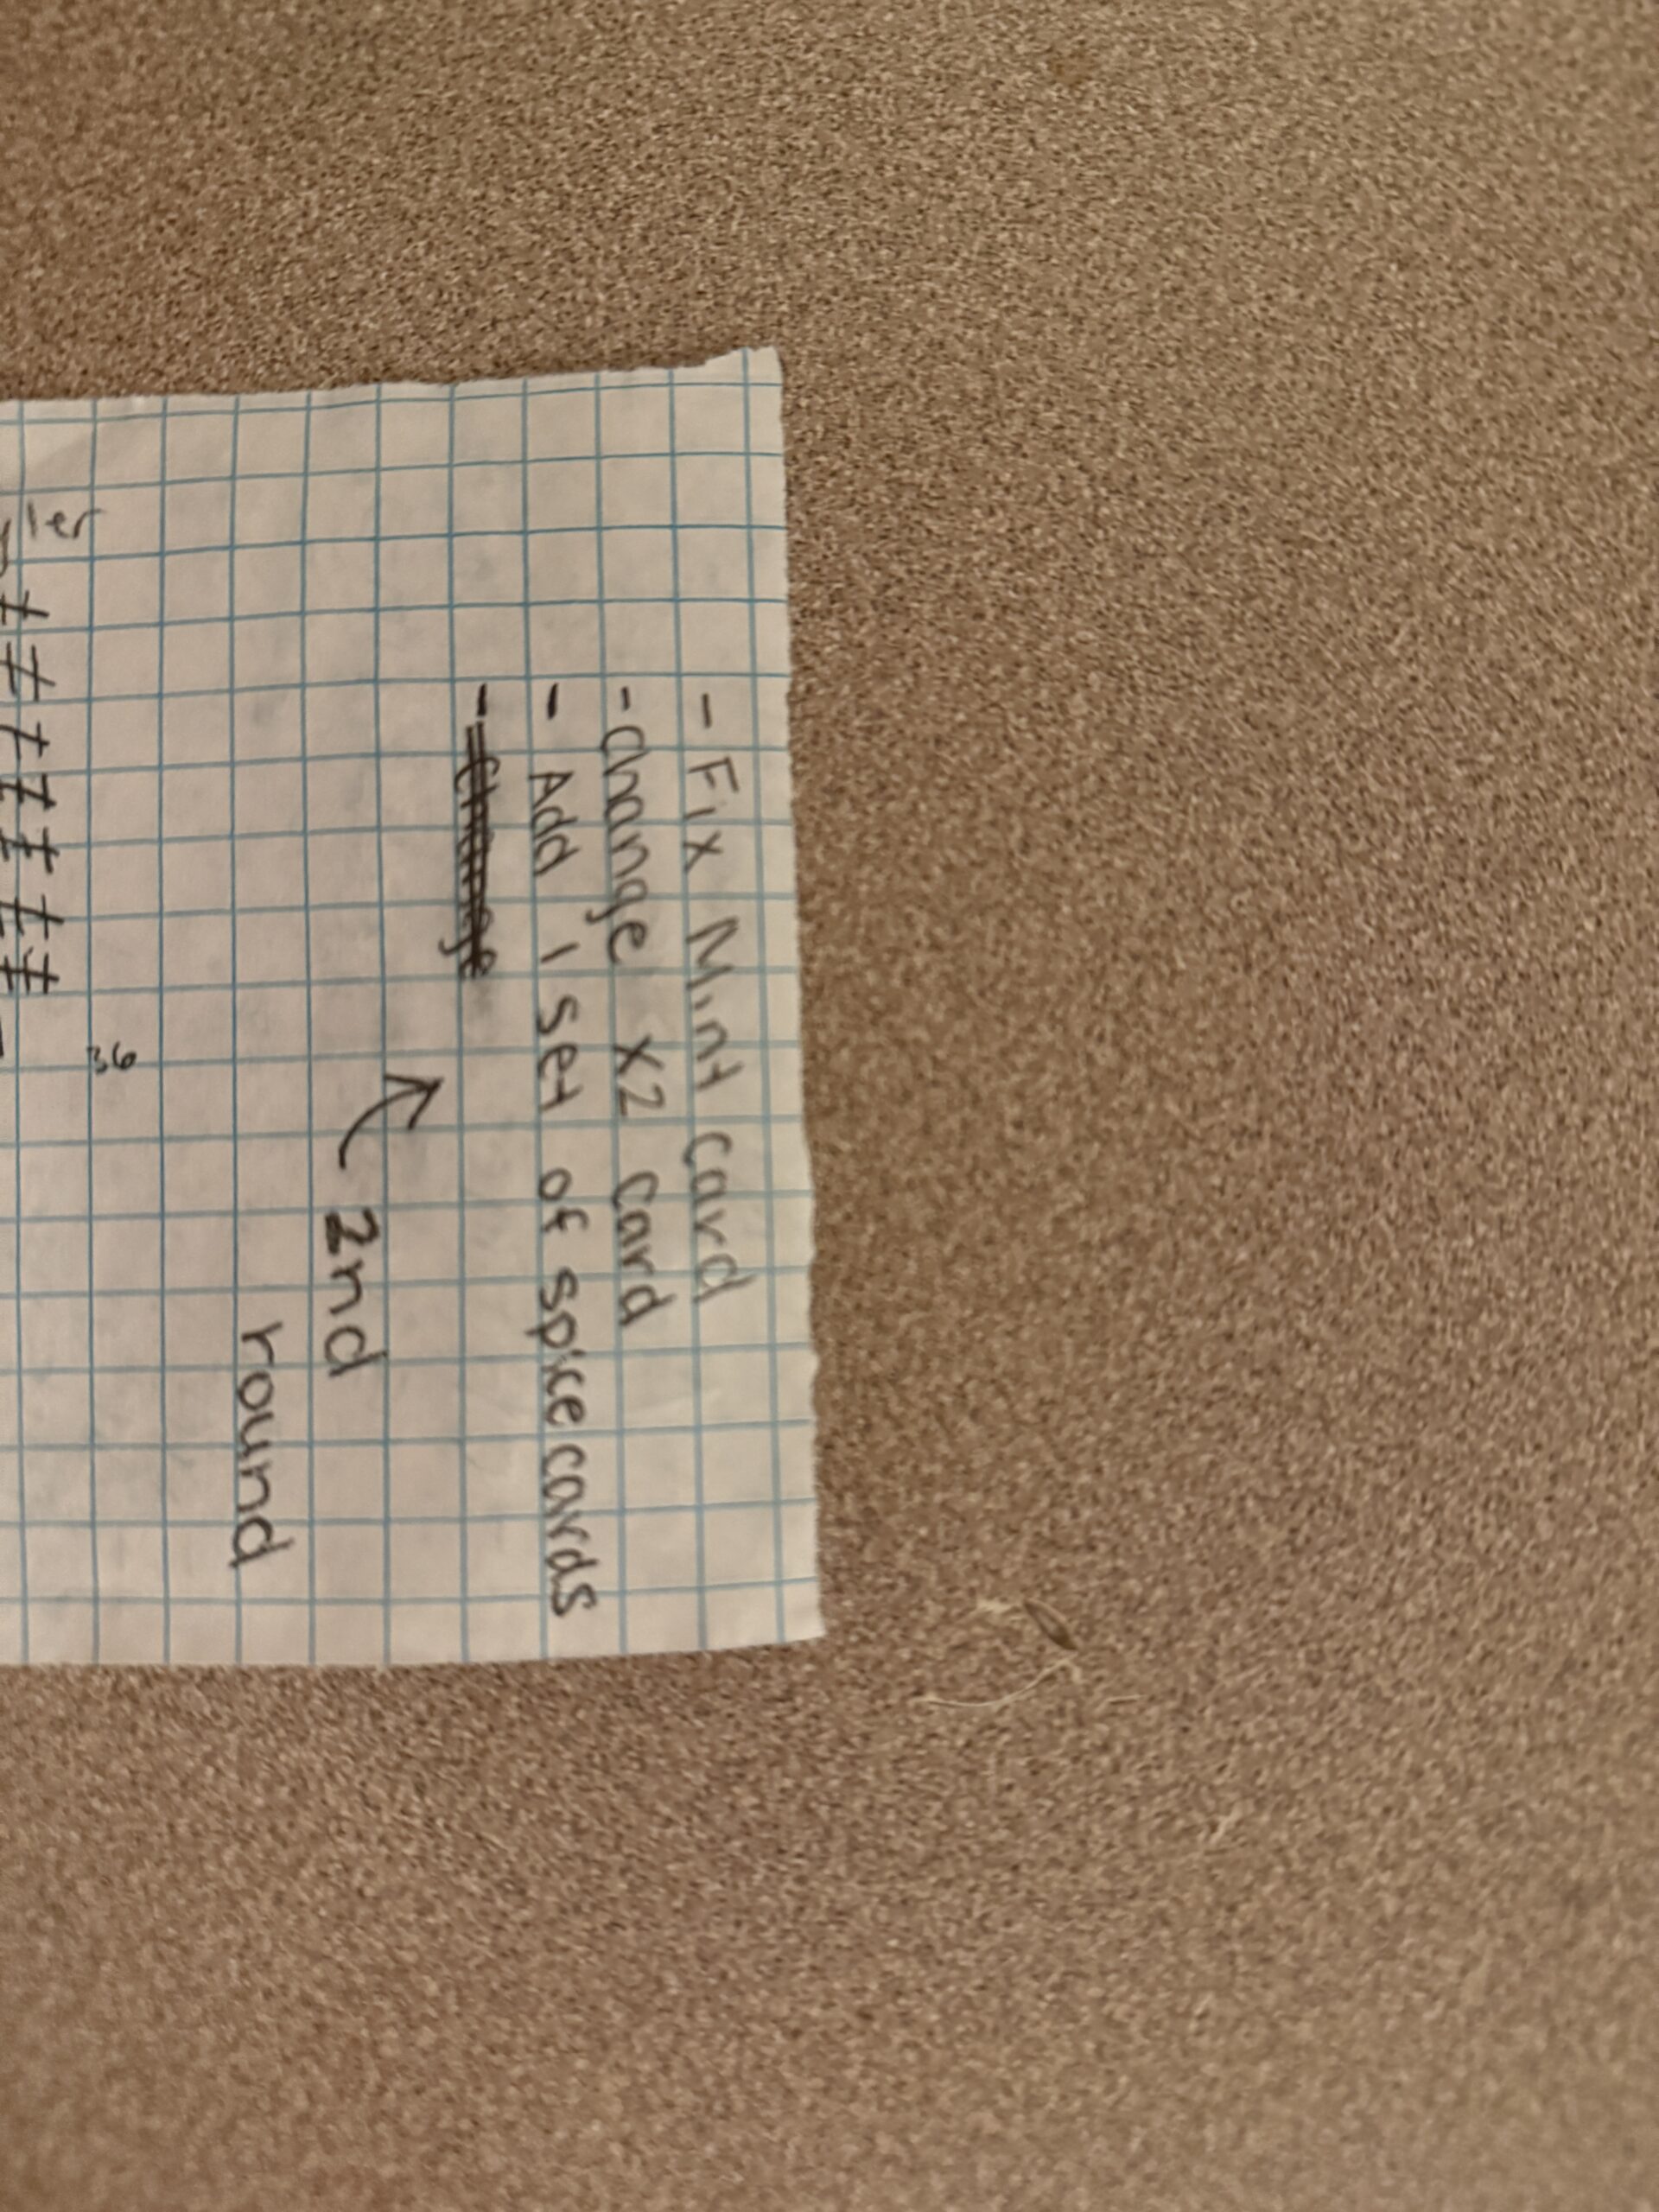 - Fix Mint card
- change x2 card
- Add 1 set of spice cards
- change
2nd
round
36